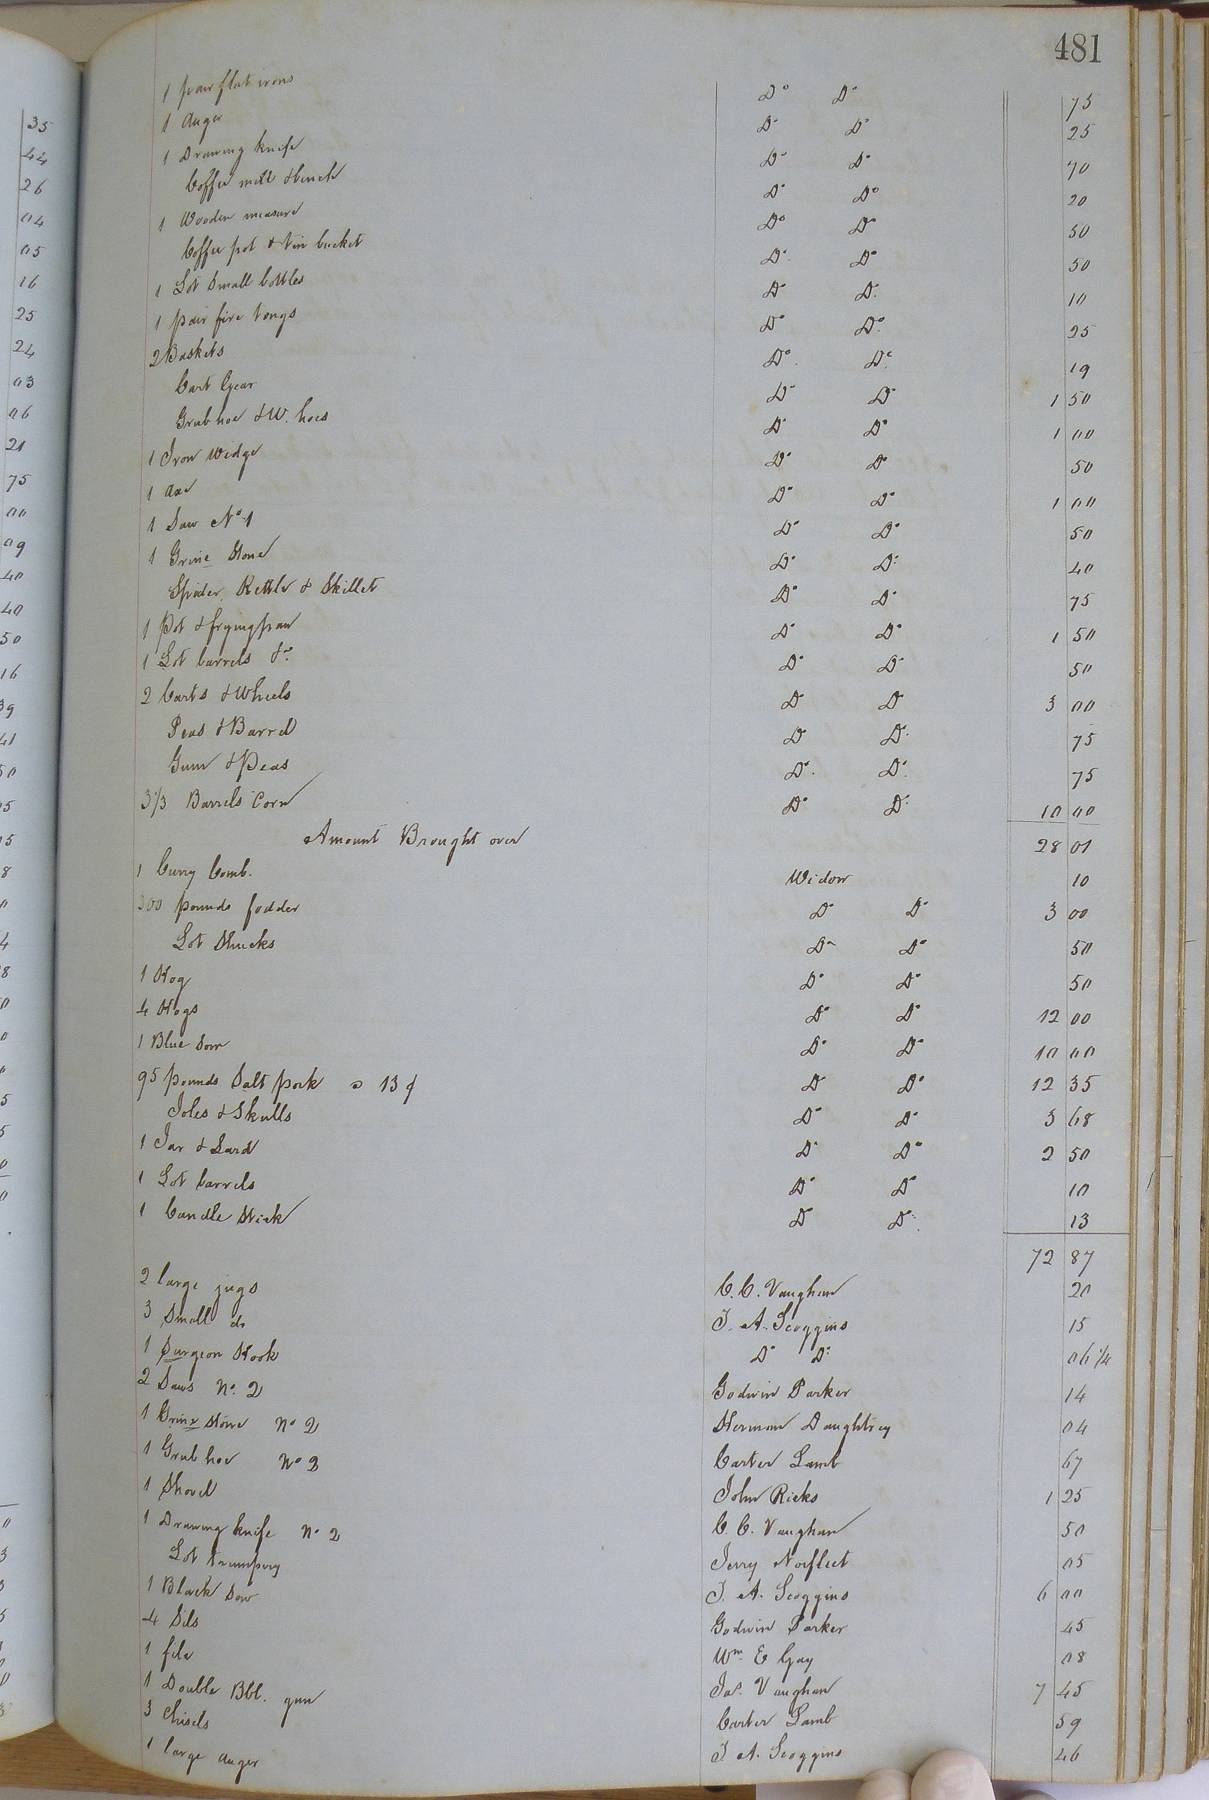 481
1 pair flat irons Do Do 75
1 auger Do Do 25
1 Drawing knife Do Do 70
Coffee mill & bench Do Do 20
1 Wooden measure Do Do 50
Coffee pot & tin bucket Do Do 50
1 Lot Small bottles Do Do 10
1 pair fire tongs Do Do 25
2 Baskets Do Do 19
Cart Gear Do Do 1 50
Grub hoe & W. hoes Do Do 1 00
1 Iron Wedge Do Do 50
1 axe Do Do 1 00
1 Saw No 1 Do Do 50
1 Grine Stone Do Do 40
Spider, Kettle & Skillet Do Do 75
1 Pot & frying pan Do Do 1 50
1 Lot barrels &c. Do Do 50
2 Carts & Wheels Do Do 3 00
Peas & Barrel Do Do 75
Gum & Peas Do Do 75
3 1/3 Barrels Corn Do Do 10 00
Amount Brought over 28 01
1 Curry Comb. Widow 10
300 pounds fodder Do Do 3 00
Lot Shucks Do Do 50
1 Hog Do Do 50
4 Hogs Do Do 12 00
1 Blue Sow Do Do 10 00
95 pounds Salt pork @ 13 ¢ Do Do 12 35
Joles & Skulls Do Do 3 68
1 Jar & Lard Do Do 2 50
1 Lot barrels Do Do 10
1 Candle Stick Do Do 13
72 87
2 large jugs C. C. Vaughan 20
3 Small do J. A. Scoggins 15
1 Surgeon Hook Do Do 06 1/4
2 Saws No. 2 Godwin Parker 14
1 Grine Stone No 2 Herman Daughtrey 04
1 Grub hoe No 2 Carter Lamb 67
1 Shovel John Ricks 1 25
1 Drawing knife No 2 C. C. Vaughan 50
Lot trumpery Jerry Norfleet 05
1 Black Sow J. A. Scoggins 6 00
4 Sils Godwin Parker 45
1 file Wm E Gay 08
1 Double Bbl. gun Jas. Vaughan 7 45
3 Chisels Carter Lamb 59
1 large auger J A. Scoggins 46